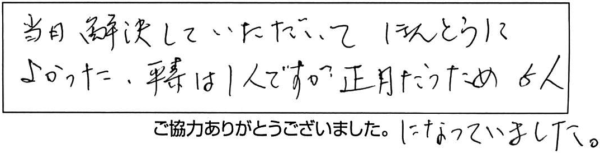 当日解決していただいて ほんとうに
よかった、平素は1人ですが正月だったため 6人
ご協力ありがとうございました。になっていました。